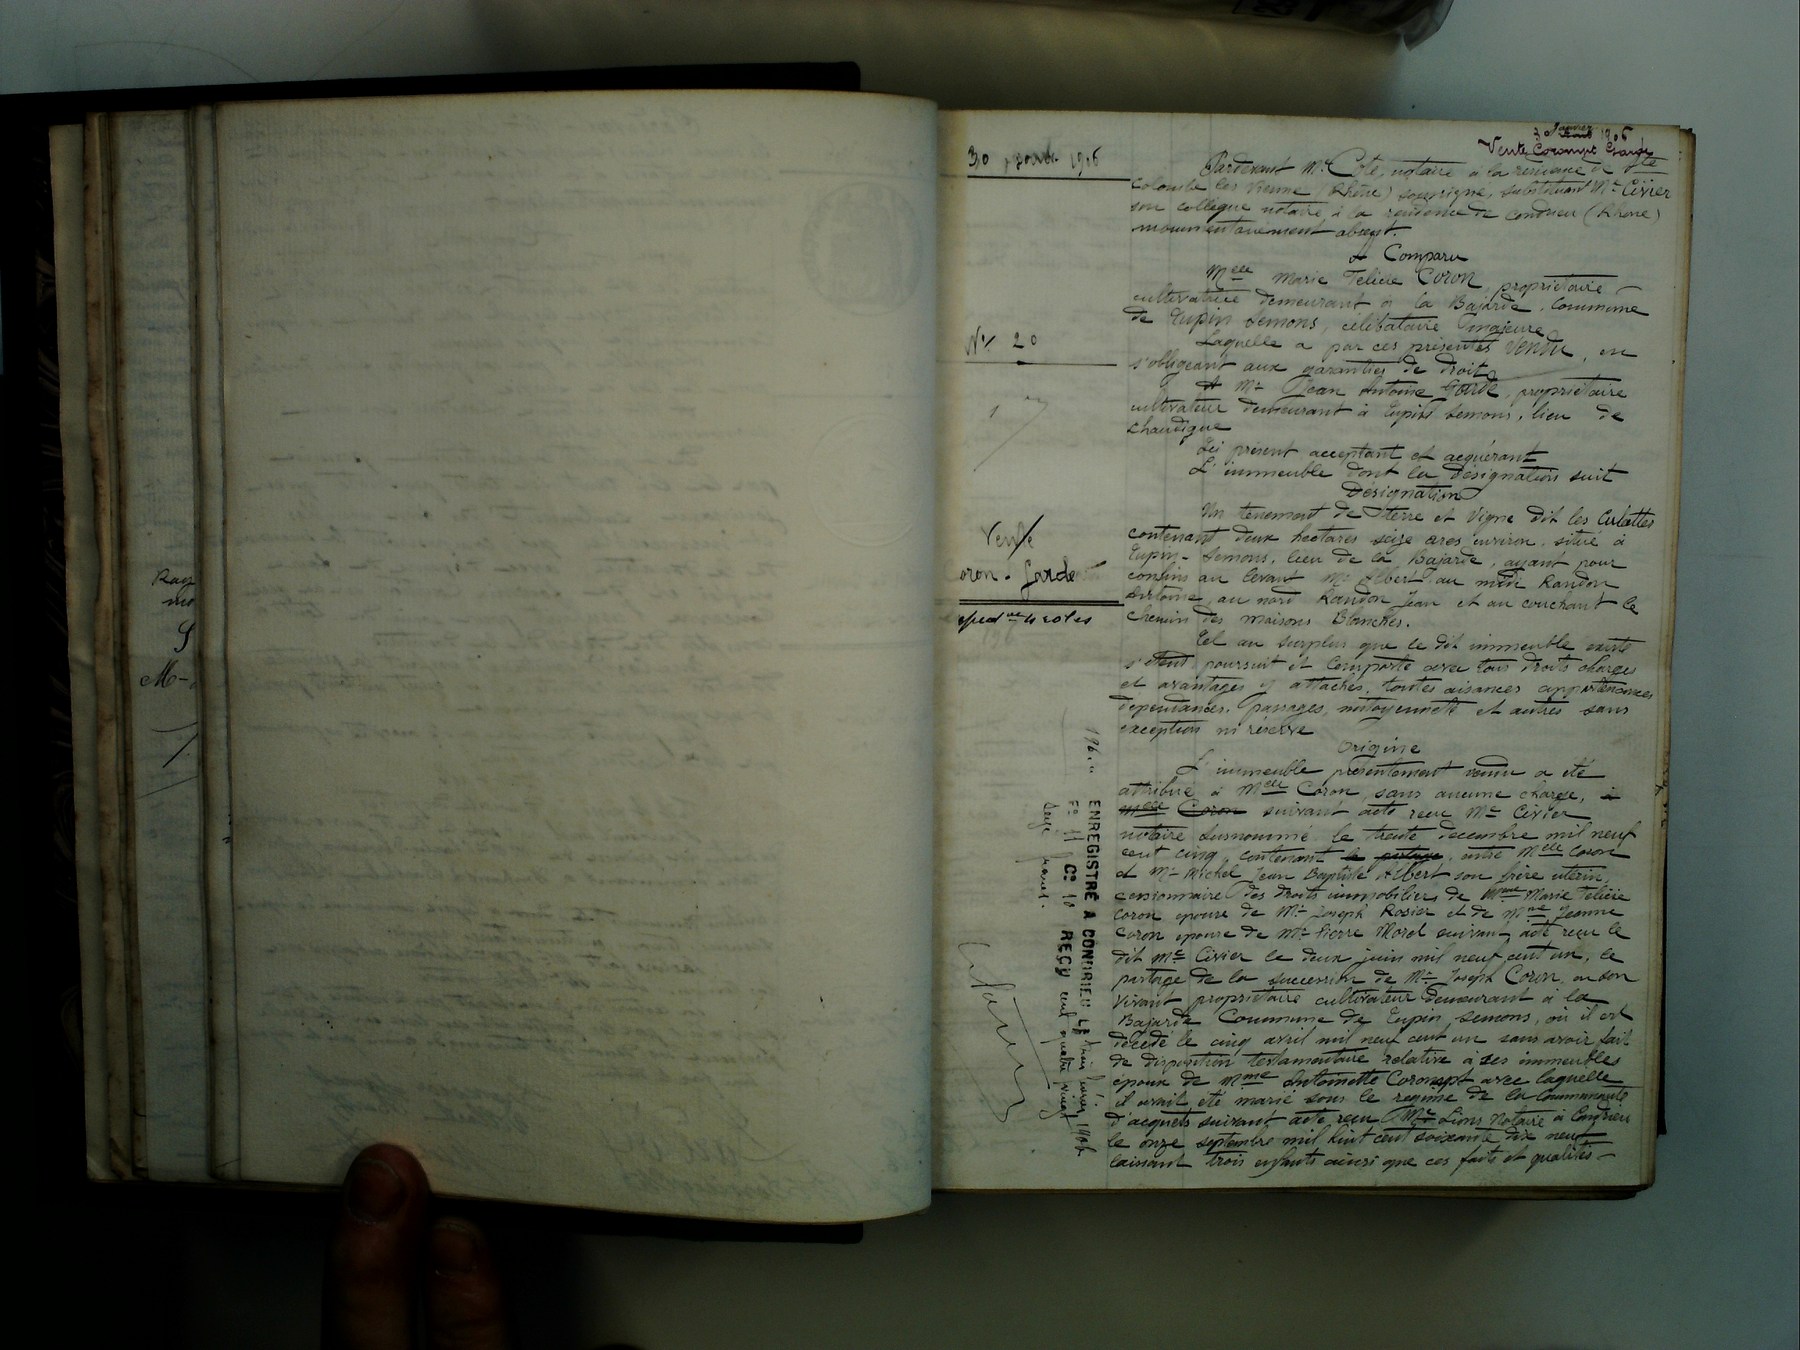 30 1906
Nº 20
Vente
oron - Garde
30 Janvier 1906
Vente Garde
Pardevant Me Cote, notaire à la résidence de Ste
colombe les Vienne (Rhône) soussigné, substituant Me Civier
son collègue notaire à la résidence de Condrieu (Rhône)
momentanement absent.
a Comparu
Melle Marie Felicie Coron, propriétaire
cultivatrice demeurant à la Bajarde, commune
de Tupin Semons, célibataire majeure
Laquelle a par ces présentes Vendu, en
s'obligeant aux garanties de droit
A Mr Jean Antoine Garde, propriétaire
cultivateur demeurant à Tupin Semons, lieu de
Chaudigue
Ici présent acceptant et acquérant
L'immeuble dont la désignation suit
Désignation
Un tenement de terre et Vigne dit les Culattes
contenant deux hectares seize ares environ, situé à
Tupin-Semons, lieu de la Bajarde, ayant pour
confins au levant Mr Albert, au midi Randon
Antoine, au nord Randon Jean et au couchant le
Chemin des Maisons Blanches.
Tel au surplus que le dit immeuble existe
s'étend, poursuit et comporte avec tous droits charges
et avantages y attachés, toutes aisances appartenances
dépendances, passages, mitoyennetés et autres sans
exception ni réserve
Origine
L'immeuble présentement vendu a été
attribué à Melle Coron, sans aucune charge, à
Melle Coron suivant acte reçu Me Civier
notaire susnommé le trente décembre mil neuf
cent cinq, contenant le partage, entre Melle Coron
et Mr Michel Jean Baptiste Albert son frère utérin,
cessionnaire des droits immobiliers de Mme Marie Felicie
Coron épouse de Mr Joseph Rosier et de Mme Jeanne
Coron épouse de Mr Pierre Morel suivant acte reçu le
dit Me Civier le deux juin mil neuf cent un, le
partage de la succession de Mr Joseph Coron, en son
vivant propriétaire cultivateur demeurant à la
Bajarde Commune de Tupin Semons, où il est
décédé le cinq avril mil neuf cent un sans avoir fait
de disposition testamentaire relative à ses immeubles
époux de Mme Antoinette Corompt avec laquelle
il avait été marié sous le régime de la Communauté
d'acquets suivant acte reçu Me Lions Notaire à Condrieu
le onze septembre mil huit cent soixante dix neuf
laissant trois enfants ainsi que ces faits et qualités
ENREGISTRÉ A CONDRIEU LE trois février 1906
Fº 11 Cº 10 REÇU cent quatre vingt